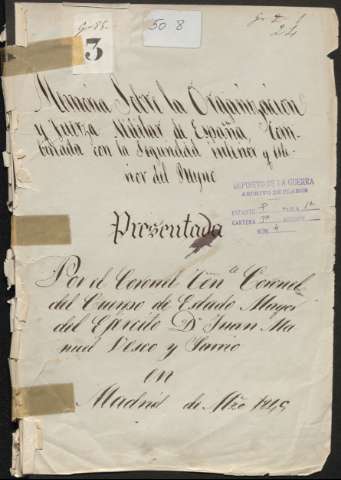 3
50 8
24
Memoria Sobre la Organizacion
y fuerza Militar de España, Com-
binada con la Seguridad interior y este-
rior del Reyno
DEPOSITO DE LA GUERRA
ARCHIVO DE PLANOS
ESTANTE TABLA
CARTERA
NÚM. 4
Presentada
Por el Coronel Ten.ᵉ Coronel
del Cuerpo de Estado Mayor
del Ejército Dⁿ Juan Ma-
nuel y
en
Madrid de 1849